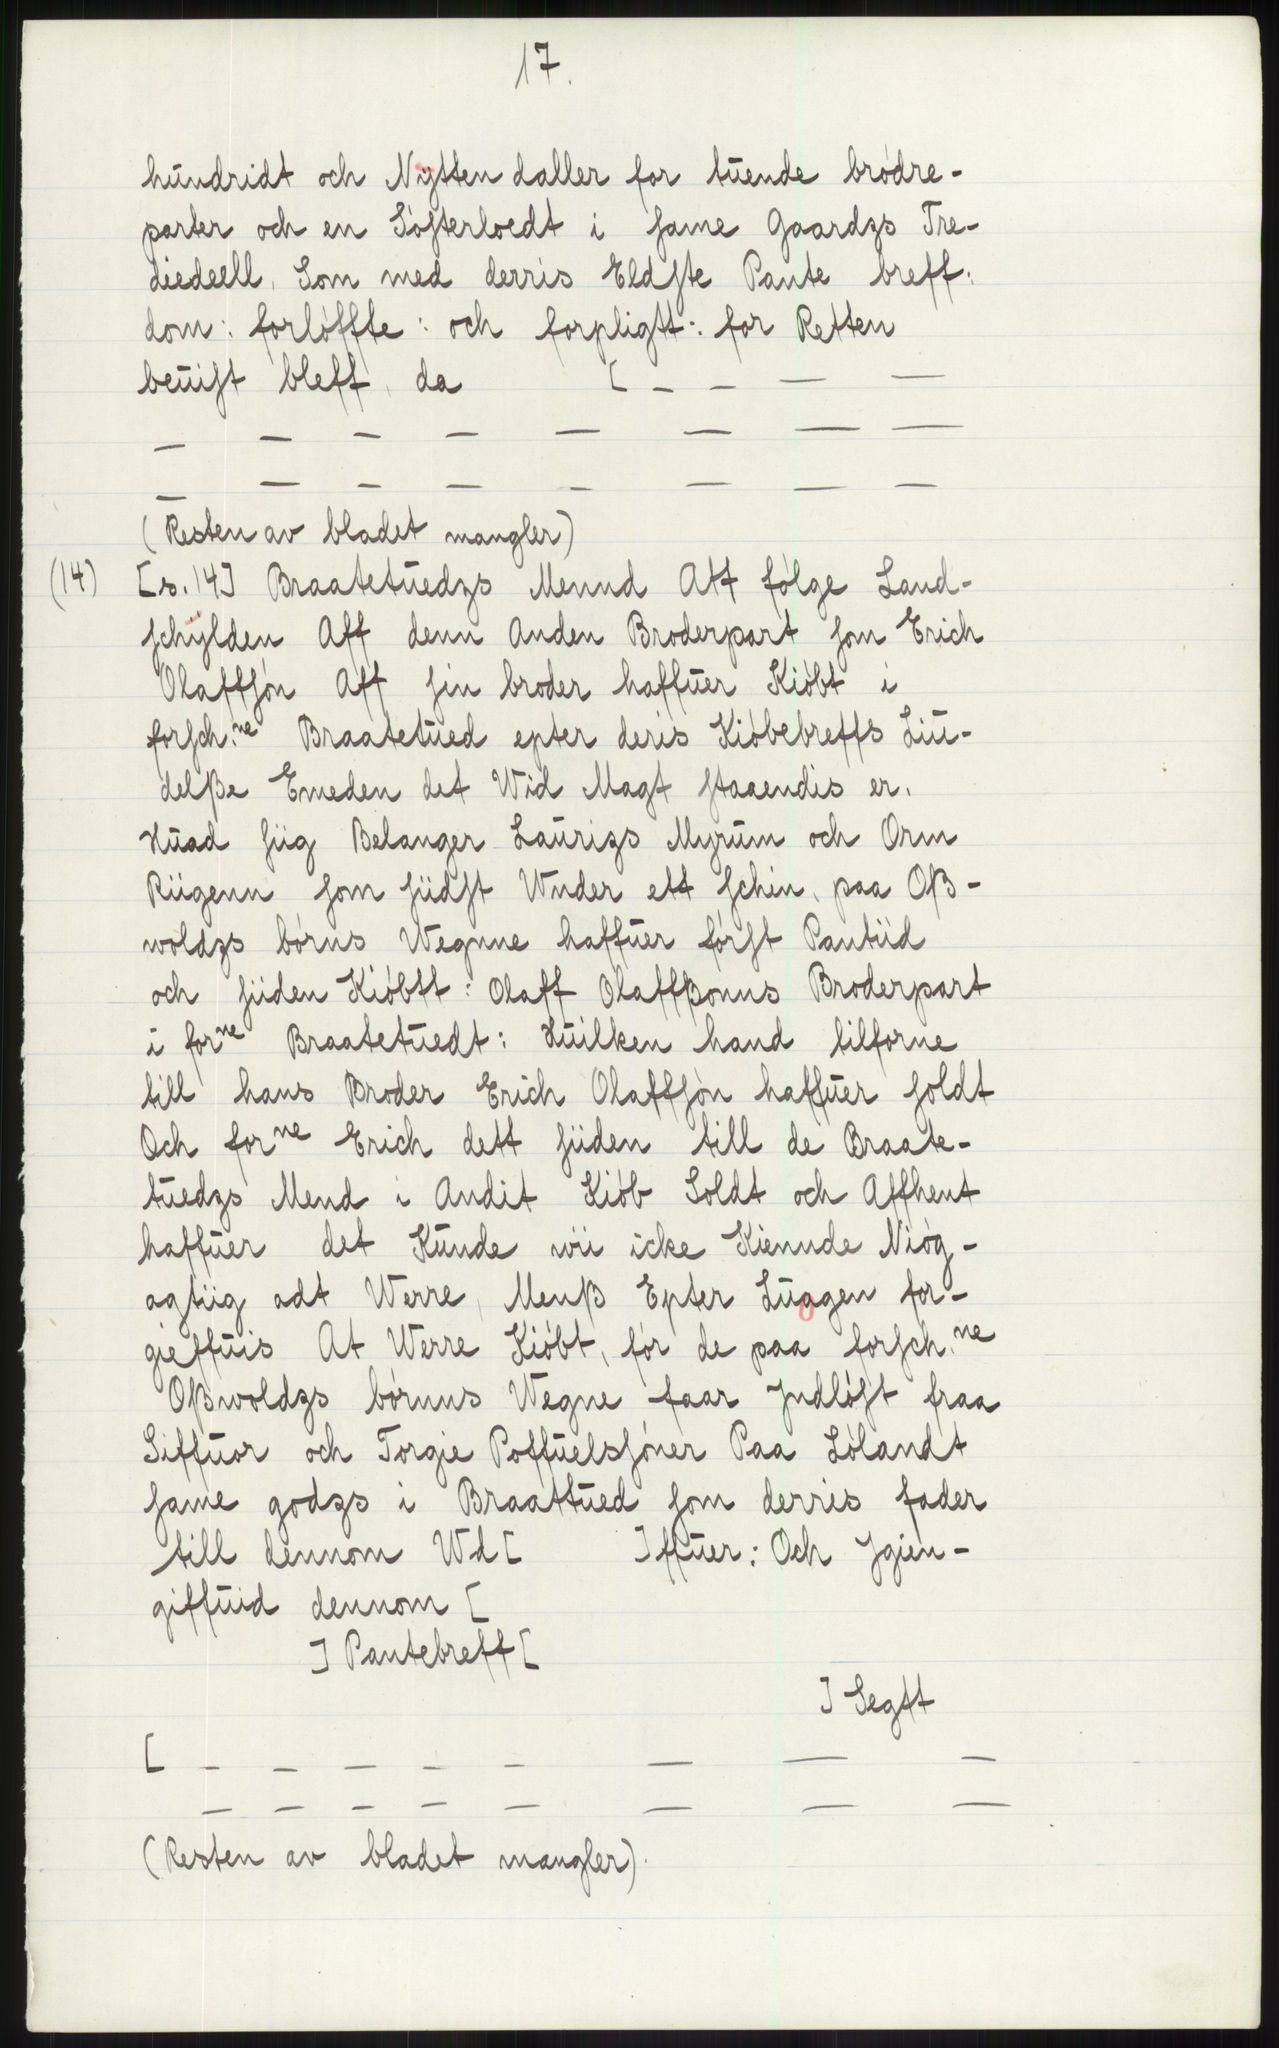 17.
hundridt och Nytten daller for tuende brødre-
parter och en Søsterloedt i same Gaardzs Tre-
diedeell, Som med derris Eldste Pante breff:
dom: forløffte: och forpligtt: for Retten
beuist bleff, da [ — — — —
— — — — — — — —
— — — — — — — —
(Resten av bladet mangler)
(14) [s. 14] Braatetuedzs Mennd Att følge Land-
schylden Aff denn Anden Broderpart som Erich
Olaffsøn Aff sin broder haffuer Kiøbt i
forsch:ne Braatetued epter deris Kiøbebreffs Liu-
delße Emeden det Wid Magt staaendis er.
Huad siig Belanger Laurizs Myrum och Orm
Riigenn som siidst Wnder ett schin, paa Oß-
woldzs børns Wegnne haffuer først Pantiid
och siiden Kiøbtt: Olaff Olaffßonns Broderpart
i forne Braatetuedt: Huilken hand tilforne
till hans Broder Erich Olaffsøn haffuer soldt
Och forne Erich dett siiden till de Braate-
tuedzs Mend i Andit Kiøb Soldt och Affhent
haffuer det Kunde wii icke Kiennde Niøg-
agtiig adt Werre, Menß Epter Luagen for-
gieffuis At Werre Kiøbt, før de paa forsch:ne
Oßwoldzs børnns Wegne faar Jndløst fraa
Siffuor och Torgie Poffuelssøner Paa Lølandt
same godzs i Braattued som derris fader
till dennom Wd[ ]ffuer: Och Jgien-
giffuid dennom [
] Pantebreff [
] Segtt
[ — — — — — — — —
— — — — — — — —
(Resten av bladet mangler).